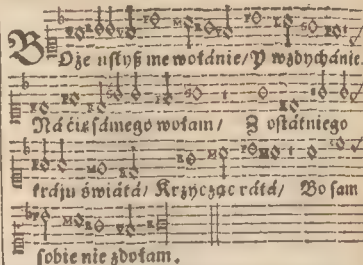 BOże usłyß me wołánie/ Y wzdychánie.
Ná ćię sámego wołam/ Z ostátniego
kráju świátá/ Krzycząc rátá/ Bo sam
sobie nie zdołam.